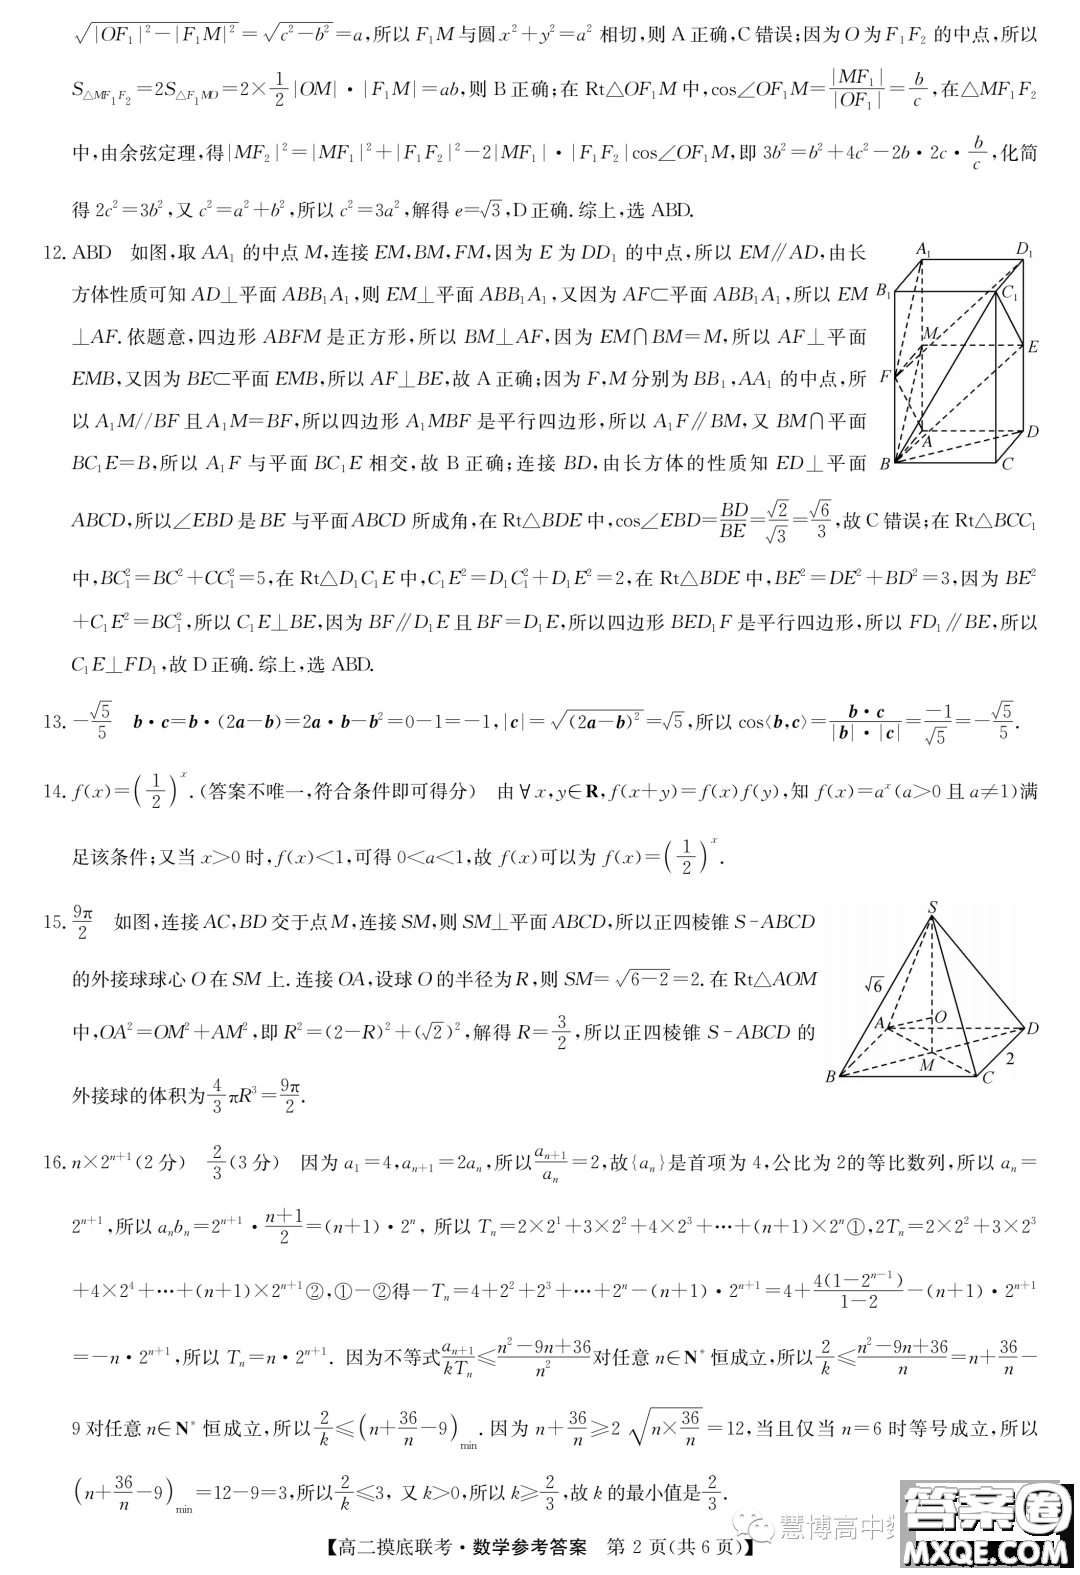 √|OF₁|²−|F₁M|² =√c²−b² =a,所以 F₁M 与圆 x²+y²=a² 相切,则 A 正确,C 错误;因为 O 为 F₁F₂ 的中点,所以
S△MF₁F₂=2S△F₁MO=2×1/2|OM|·|F₁M|=ab,则 B 正确;在 Rt△OF₁M 中,cos∠OF₁M=|MF₁|/|OF₁|=b/c,在△MF₁F₂
中,由余弦定理,得|MF₂|²=|MF₁|²+|F₁F₂|²−2|MF₁|·|F₁F₂|cos∠OF₁M,即 3b²=b²+4c²−2b·2c·b/c,化简
得 2c²=3b²,又 c²=a²+b²,所以 c²=3a²,解得 e=√3,D 正确.综上,选 ABD.
12. ABD 如图,取 AA₁ 的中点 M,连接 EM,BM,FM,因为 E 为 DD₁ 的中点,所以 EM∥AD,由长
方体性质可知 AD⊥平面 ABB₁A₁,则 EM⊥平面 ABB₁A₁,又因为 AF⊂平面 ABB₁A₁,所以 EM
⊥AF.依题意,四边形 ABFM 是正方形,所以 BM⊥AF,因为 EM∩BM=M,所以 AF⊥平面
EMB,又因为 BE⊂平面 EMB,所以 AF⊥BE,故 A 正确;因为 F,M 分别为 BB₁,AA₁ 的中点,所
以 A₁M//BF 且 A₁M=BF,所以四边形 A₁MBF 是平行四边形,所以 A₁F∥BM,又 BM∩平面
BC₁E=B,所以 A₁F 与平面 BC₁E 相交,故 B 正确;连接 BD,由长方体的性质知 ED⊥平面
A₁ D₁
B₁ C₁
M
E
F
A D
B C
ABCD,所以∠EBD 是 BE 与平面 ABCD 所成角,在 Rt△BDE 中,cos∠EBD=BD/BE=√2/√3=√6/3,故 C 错误;在 Rt△BCC₁
中,BC₁²=BC²+CC₁²=5,在 Rt△D₁C₁E 中,C₁E²=D₁C₁²+D₁E²=2,在 Rt△BDE 中,BE²=DE²+BD²=3,因为 BE²
+C₁E²=BC₁²,所以 C₁E⊥BE,因为 BF∥D₁E 且 BF=D₁E,所以四边形 BED₁F 是平行四边形,所以 FD₁∥BE,所以
C₁E⊥FD₁,故 D 正确.综上,选 ABD.
13. −√5/5 b·c=b·(2a−b)=2a·b−b²=0−1=−1,|c|=√(2a−b)²=√5,所以 cos⟨b,c⟩=b·c/|b|·|c|=−1/√5=−√5/5.
14. f(x)=(1/2)ˣ.(答案不唯一,符合条件即可得分) 由∀x,y∈R,f(x+y)=f(x)f(y),知 f(x)=aˣ(a>0 且 a≠1)满
足该条件;又当 x>0 时,f(x)<1,可得 0<a<1,故 f(x)可以为 f(x)=(1/2)ˣ.
15. 9π/2 如图,连接 AC,BD 交于点 M,连接 SM,则 SM⊥平面 ABCD,所以正四棱锥 S-ABCD
的外接球球心 O 在 SM 上.连接 OA,设球 O 的半径为 R,则 SM=√6−2=2.在 Rt△AOM
中,OA²=OM²+AM²,即 R²=(2−R)²+(√2)²,解得 R=3/2,所以正四棱锥 S-ABCD 的
外接球的体积为4/3πR³=9π/2.
S
√6
A O D
M 2
B C
16. n×2ⁿ⁺¹(2 分) 2/3(3 分) 因为 a₁=4,aₙ₊₁=2aₙ,所以aₙ₊₁/aₙ=2,故{aₙ}是首项为 4,公比为 2的等比数列,所以 aₙ=
2ⁿ⁺¹,所以 aₙbₙ=2ⁿ⁺¹·n+1/2=(n+1)·2ⁿ, 所以 Tₙ=2×2¹+3×2²+4×2³+…+(n+1)×2ⁿ①,2Tₙ=2×2²+3×2³
+4×2⁴+…+(n+1)×2ⁿ⁺¹②,①−②得−Tₙ=4+2²+2³+…+2ⁿ−(n+1)·2ⁿ⁺¹=4+4(1−2ⁿ⁻¹)/1−2−(n+1)·2ⁿ⁺¹
=−n·2ⁿ⁺¹,所以 Tₙ=n·2ⁿ⁺¹. 因为不等式aₙ₊₁/kTₙ≤n²−9n+36/n²对任意 n∈N* 恒成立,所以2/k≤n²−9n+36/n=n+36/n−
9 对任意 n∈N* 恒成立,所以2/k≤(n+36/n−9)min.因为 n+36/n≥2√n×36/n=12,当且仅当 n=6 时等号成立,所以
(n+36/n−9)min=12−9=3,所以2/k≤3, 又 k>0,所以 k≥2/3,故 k 的最小值是2/3.
慧博高中数
答案圈
MXQE.COM
【高二摸底联考·数学参考答案 第 2 页(共 6 页)】